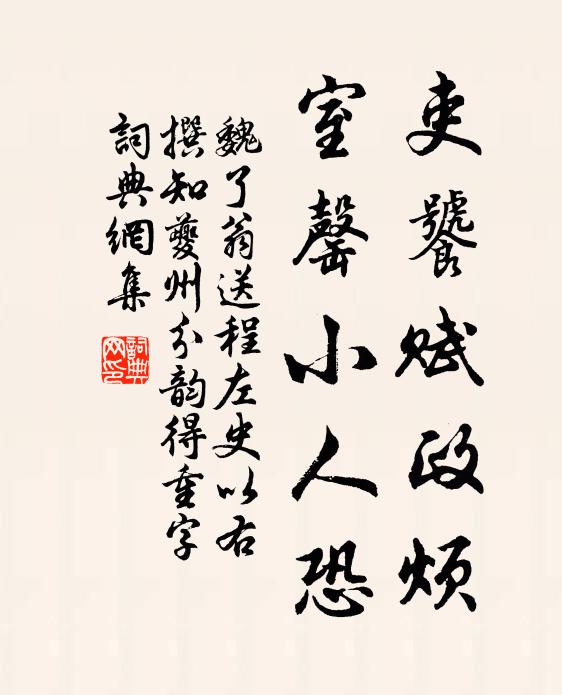 吏饕賦政煩
室罄小人恐
魏了翁送程左史以右
撰知夔州分韵得重字
詞典網集
詞典网印